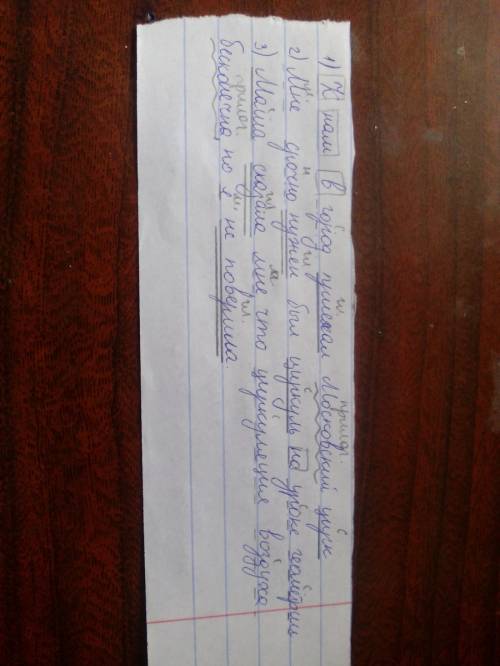 1) К нам в город приехал Московский цирк
2) Мне срочно нужен был циркуль на уроке геометрии
3) Маша сказала мне, что циркуляция воздуха
бесконечна, но я не поверила.